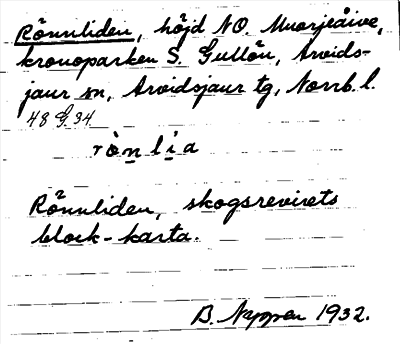 Rönnliden, höjd NO. Muorjeåive,
kronoparken S. Gullön, Arvids-
jaur sn, Arvidsjaur tg, Norrb. l.
48 G 34
rònlia
Rönnliden, skogsrevirets
block-karta.
B. 1932.